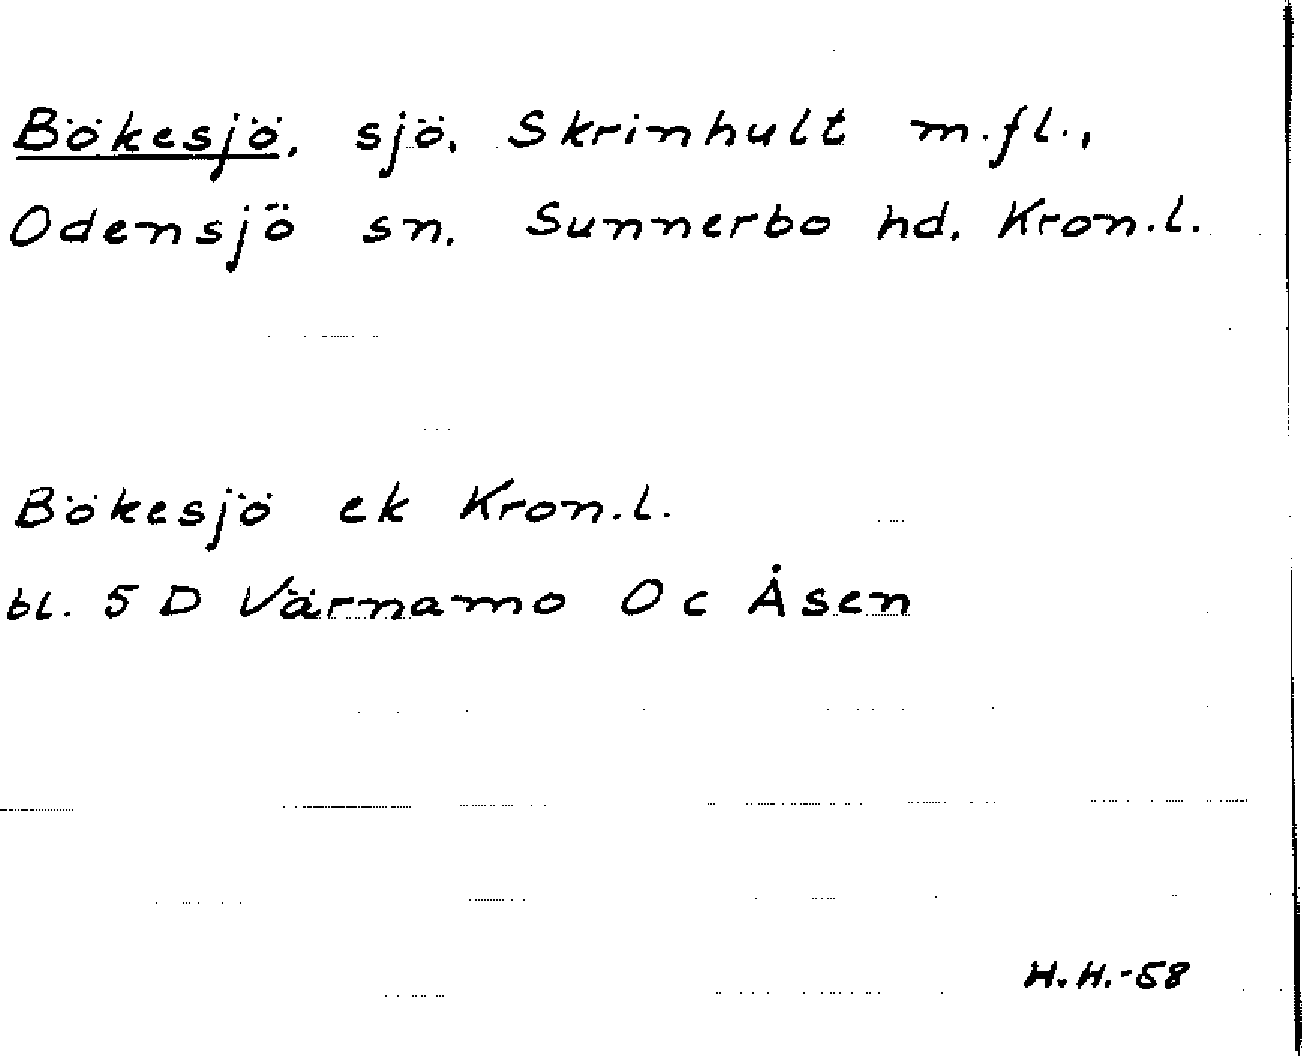 Bökesjö, sjö, Skrinhult m.fl.,
Odensjö sn. Sunnerbo hd. Kron.l.
Bökesjö ek Kron.l.
bl. 5 D Värnamo Oc Åsen
H.H.-58